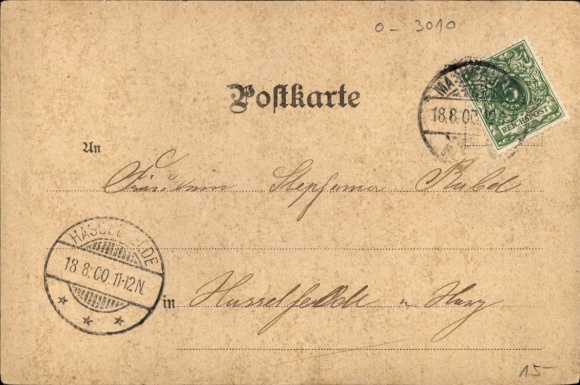 0-3010
Postkarte
MAGDEBURG
18.8.00
REICHSPOST
5
An
Fräulein Stephanie
HASSELFELDE
18.8.00.11-12N.
in Hasselfelde a Harz
15-